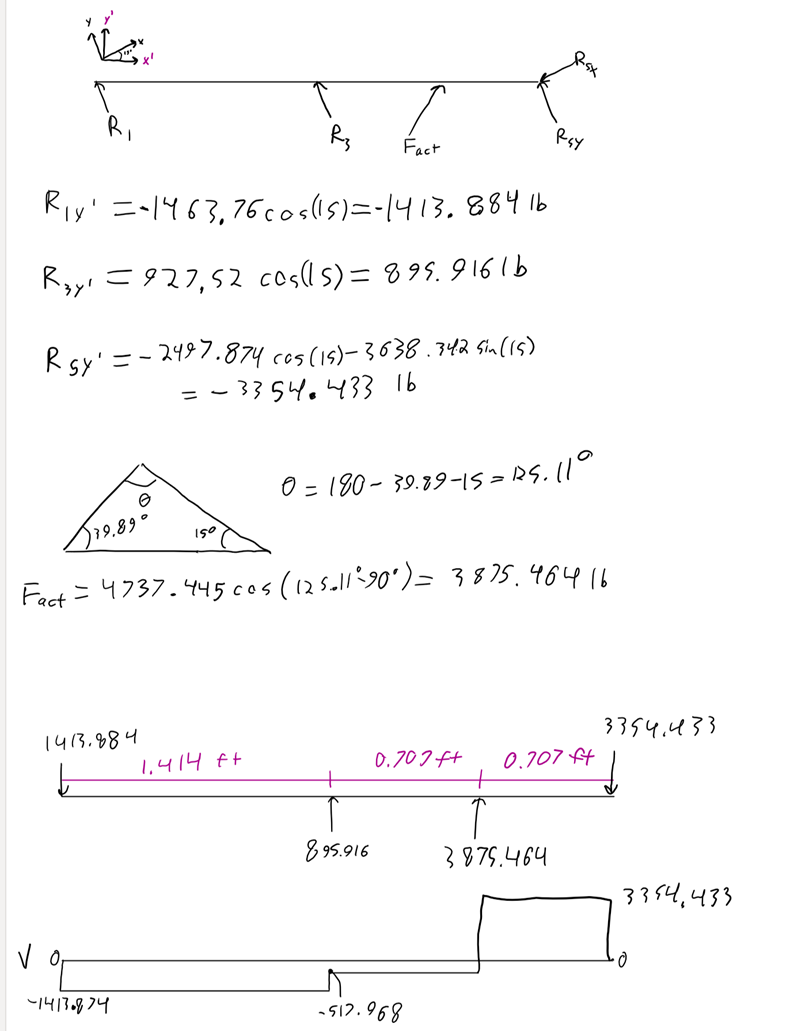 y y'
x
15°
x'
R5x
R1
R3
Fact
R5y
R1y' = -1463.76 cos(15) = -1413.884 lb
R3y' = 927.52 cos(15) = 895.916 lb
R5y' = -2497.874 cos(15) - 3638.342 sin(15)
= -3354.433 lb
θ
39.89°
15°
θ = 180 - 39.89 - 15 = 125.11°
Fact = 4737.445 cos(125.11° - 90°) = 3875.464 lb
1413.884
3354.433
1.414 ft
0.707 ft
0.707 ft
895.916
3875.464
3354.433
V 0
0
-1413.874
-517.968